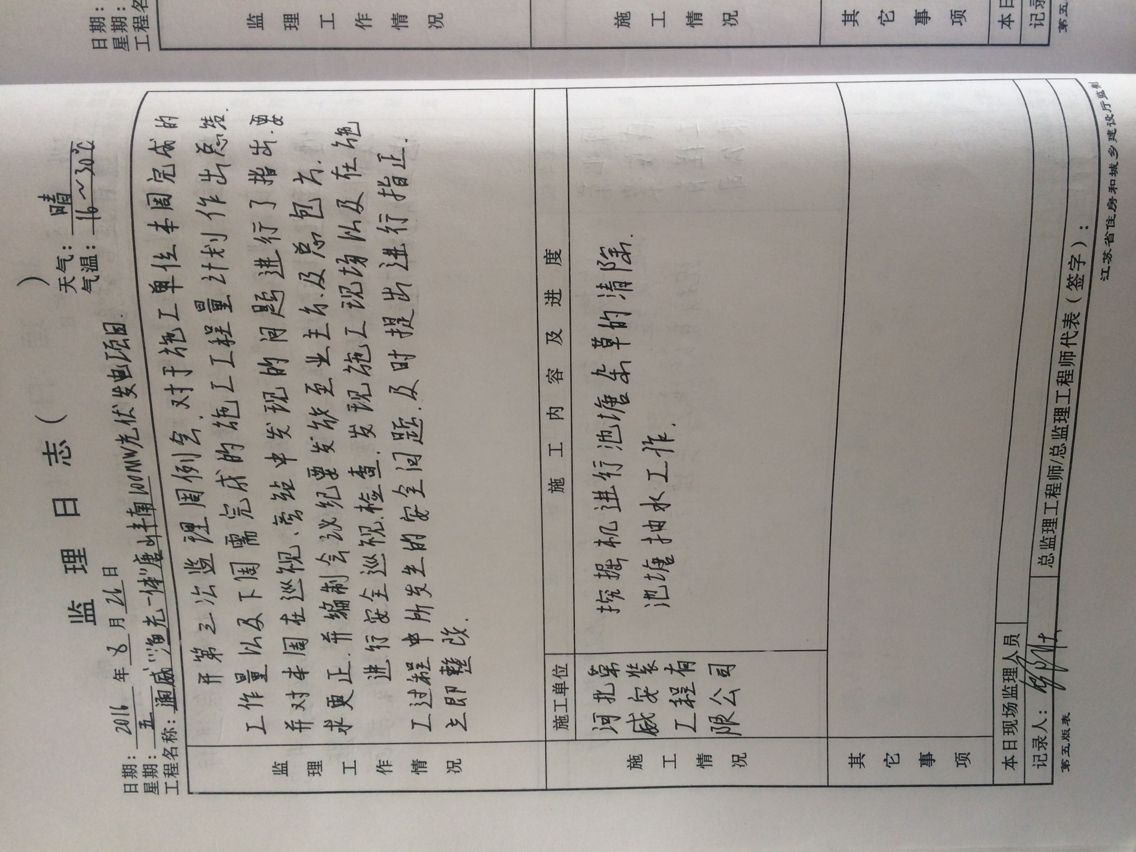 监理日志( )
日期: 2016 年 8 月 26 日 天气: 晴
星期: 五 气温: 16~30℃
工程名称: 通威"渔光一体"唐山丰南100MW光伏发电项目.
监理工作情况
开第三次监理周例会.对于施工单位本周完成的
工作量以及下周需完成的施工工程量计划作出总结.
并对本周在巡视、旁站中发现的问题进行了指出.要
求更正.并编制会议纪要发放至业主方.及总包方.
进行安全巡视.检查.发现施工现场以及在施
工过程中所发生的安全问题.及时提出进行指正.
立即整改.
施工情况
施工单位 施工内容及进度
河北第 挖掘机进行池塘杂草的清除.
威安装 池塘抽水工作.
工程有
限公司
其它事项
本日现场监理人员
记录人: 总监理工程师/总监理工程师代表(签字):
第五版表 江苏省住房和城乡建设厅监制
日期:
星期:
工程名
监理工作情况
施工情况
其它事项
本日
记录
第五